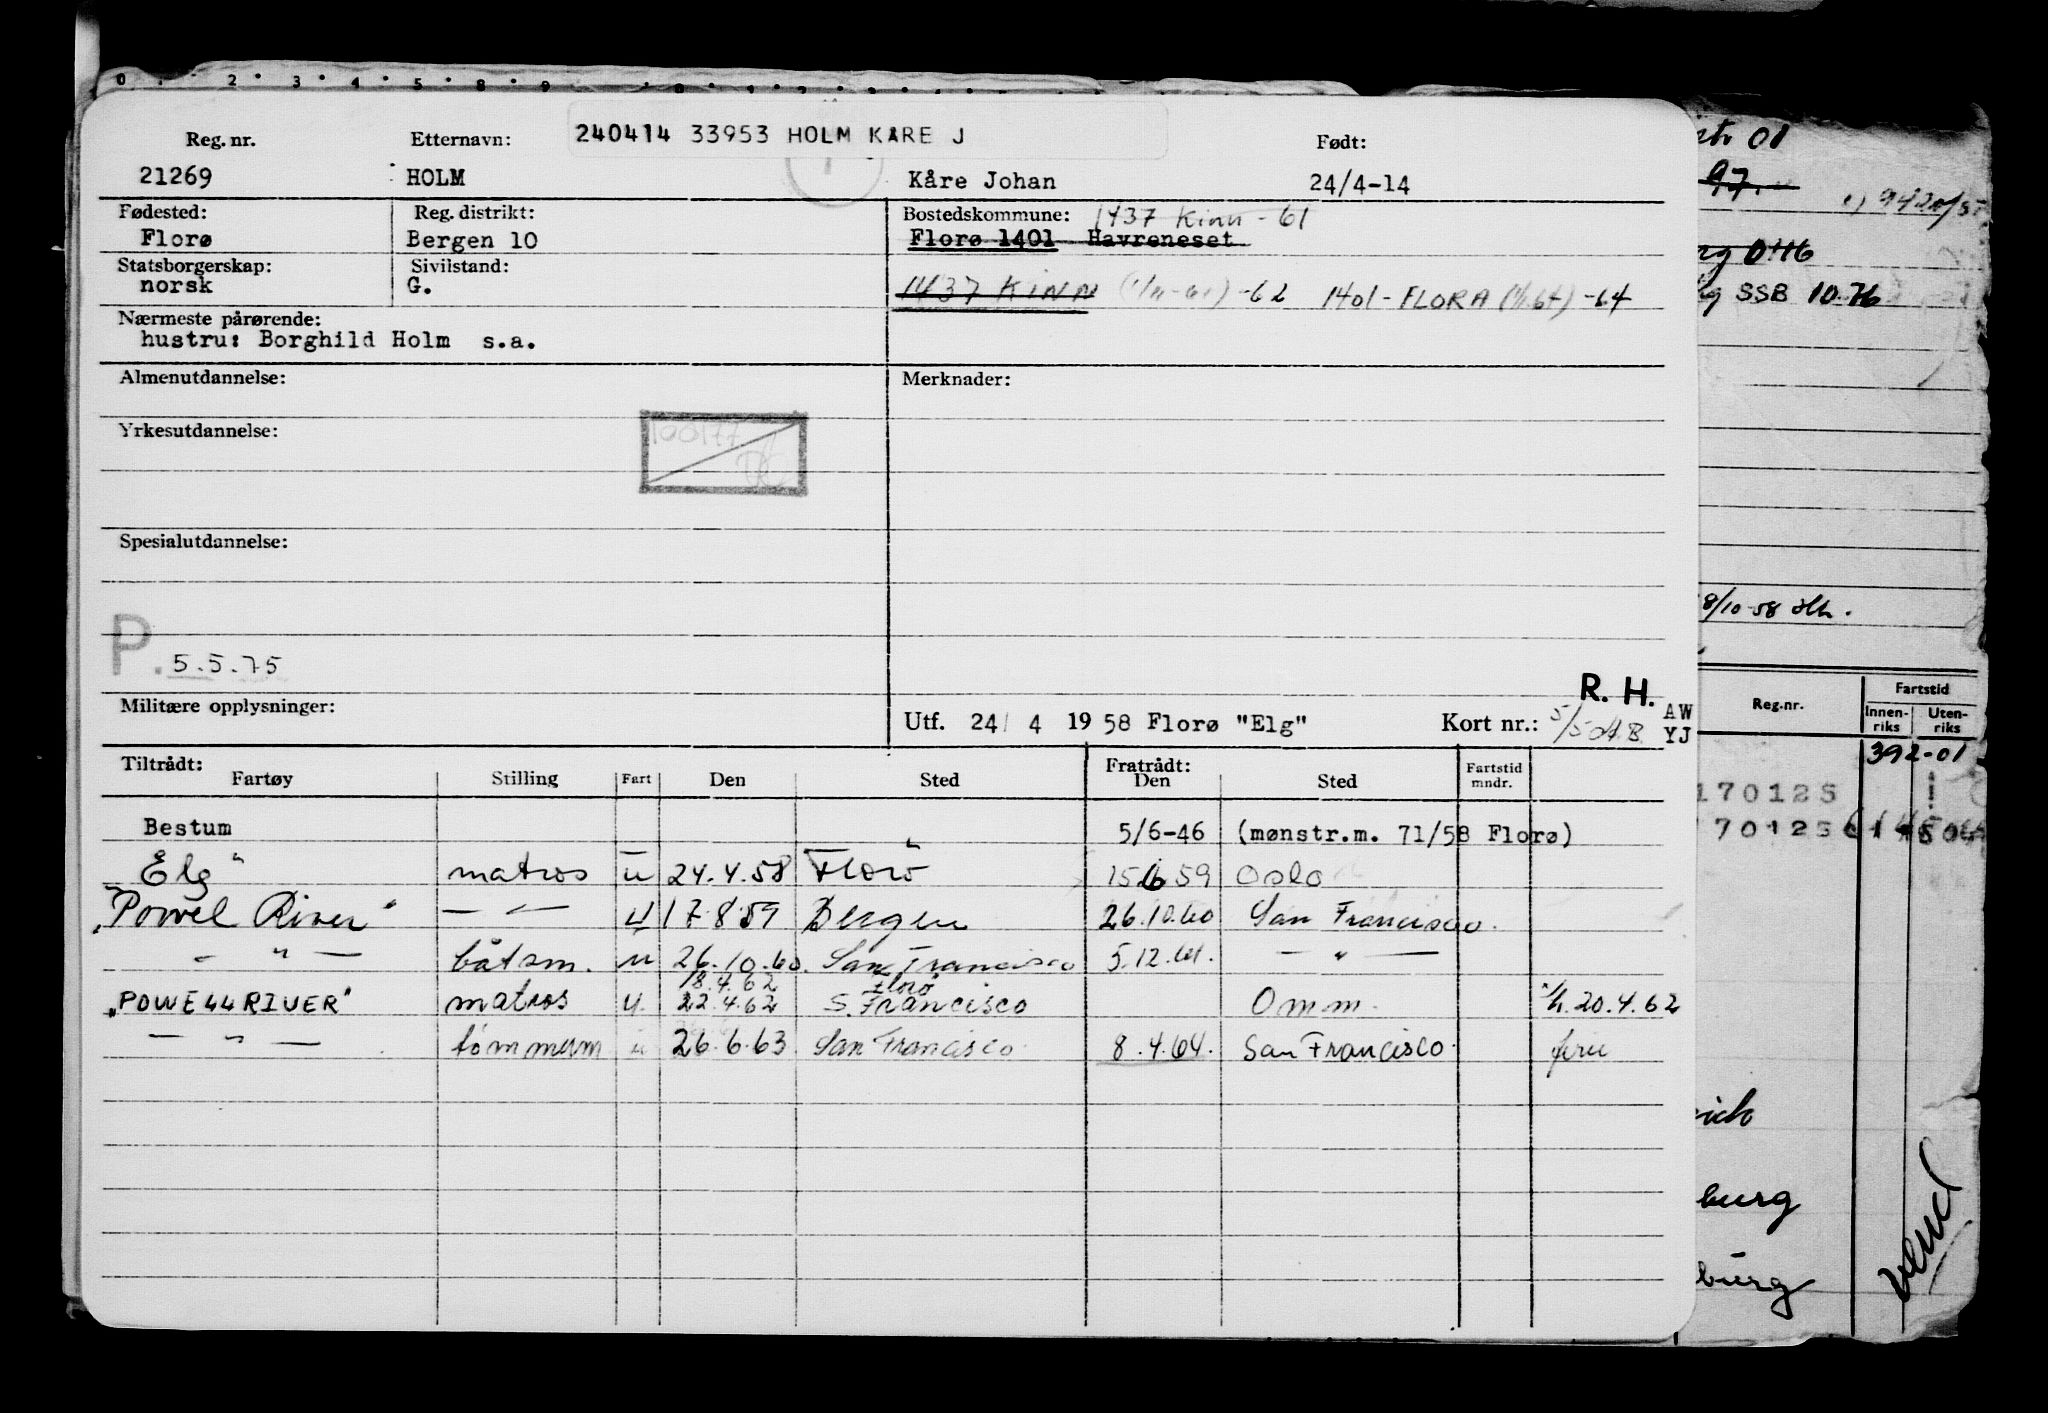 240414 33953 HOLM KÅRE J
Reg. nr. Etternavn: Født:
21269 HOLM Kåre Johan 24/4-14
Fødested: Reg. distrikt: Bostedskommune: 1437 Kinn - 61
Florø Bergen 10 Florø 1401 Havreneset
Statsborgerskap: Sivilstand:
norsk G. 1437 KINN (1/11-61) -62 1401 - FLORA (1/1.64) -64
Nærmeste pårørende:
hustru: Borghild Holm s.a.
Almenutdannelse: Merknader:
Yrkesutdannelse:
100177
Spesialutdannelse:
P. 5.5.75
R. H.
Militære opplysninger: Utf. 24/ 4 19 58 Florø "Elg" Kort nr.: AW
YJ
Tiltrådt: Fratrådt:
Fartøy Stilling Fart Den Sted Den Sted Fartstid mndr.
Bestum 5/6-46 (mønstr.m. 71/58 Florø)
Elg" matros u 24.4.58 Florø 15 6 59 Oslo
"Powel River" — " — u 17.8.59 Bergen 26.10.60 San Francisco.
- " — båtsm. u 26.10.60. San Francisco 5.12.61. — " —
18.4.62 Florø
"POWELL RIVER" matros u. 22.4.62 S. Francisco Omm. 20.4.62
— " — tømmerm u 26.6.63. San Francisco. 8.4.64. San Francisco.
01
97.
9420/5
0416
SSB 10.76
8/10-58
Reg.nr. Fartstid
Innen-
riks Uten-
riks
392-01
170125
burg
burg
vend